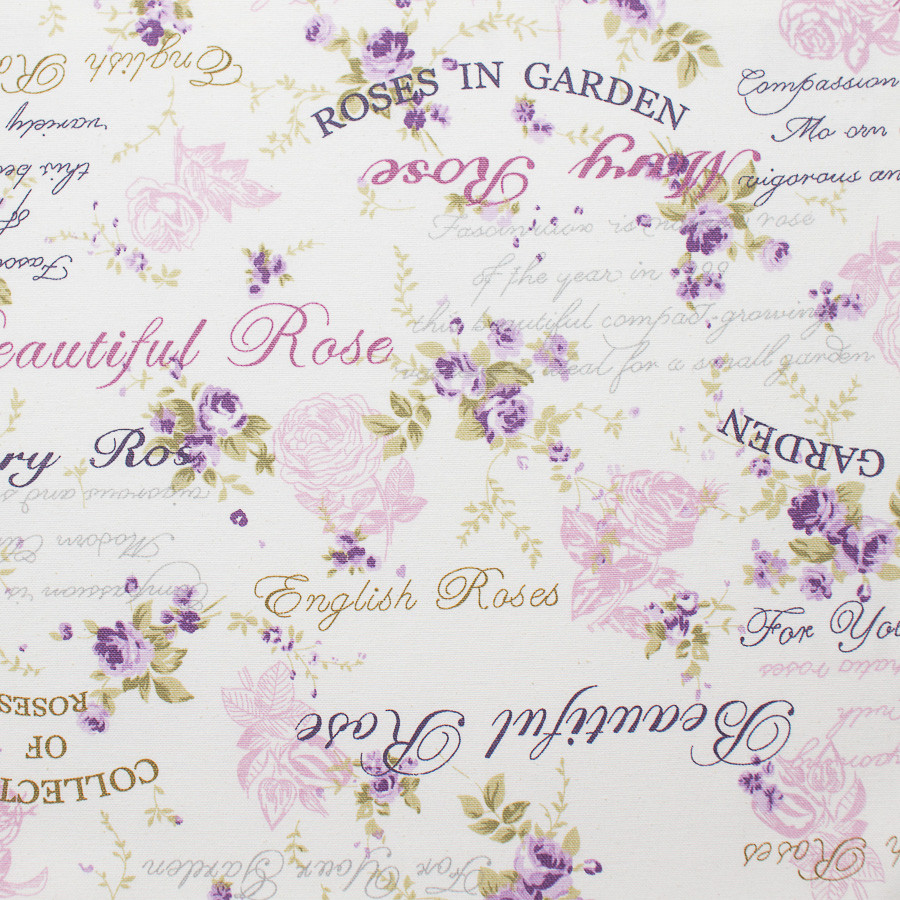 English Ro
ROSES IN GARDEN
Compassion
variety
Mary Rose
this be
vigorous an
of
Fascination is rose
of the year in
this beautiful compact-growing
ideal for a small garden
eautiful Rose
GARDEN
ry Ros
vigorous and s
Modern
English Roses
Compassion is
For You
roses
ROSES
OF
COLLECT
Beautiful Rose
Roses
For Your Garden